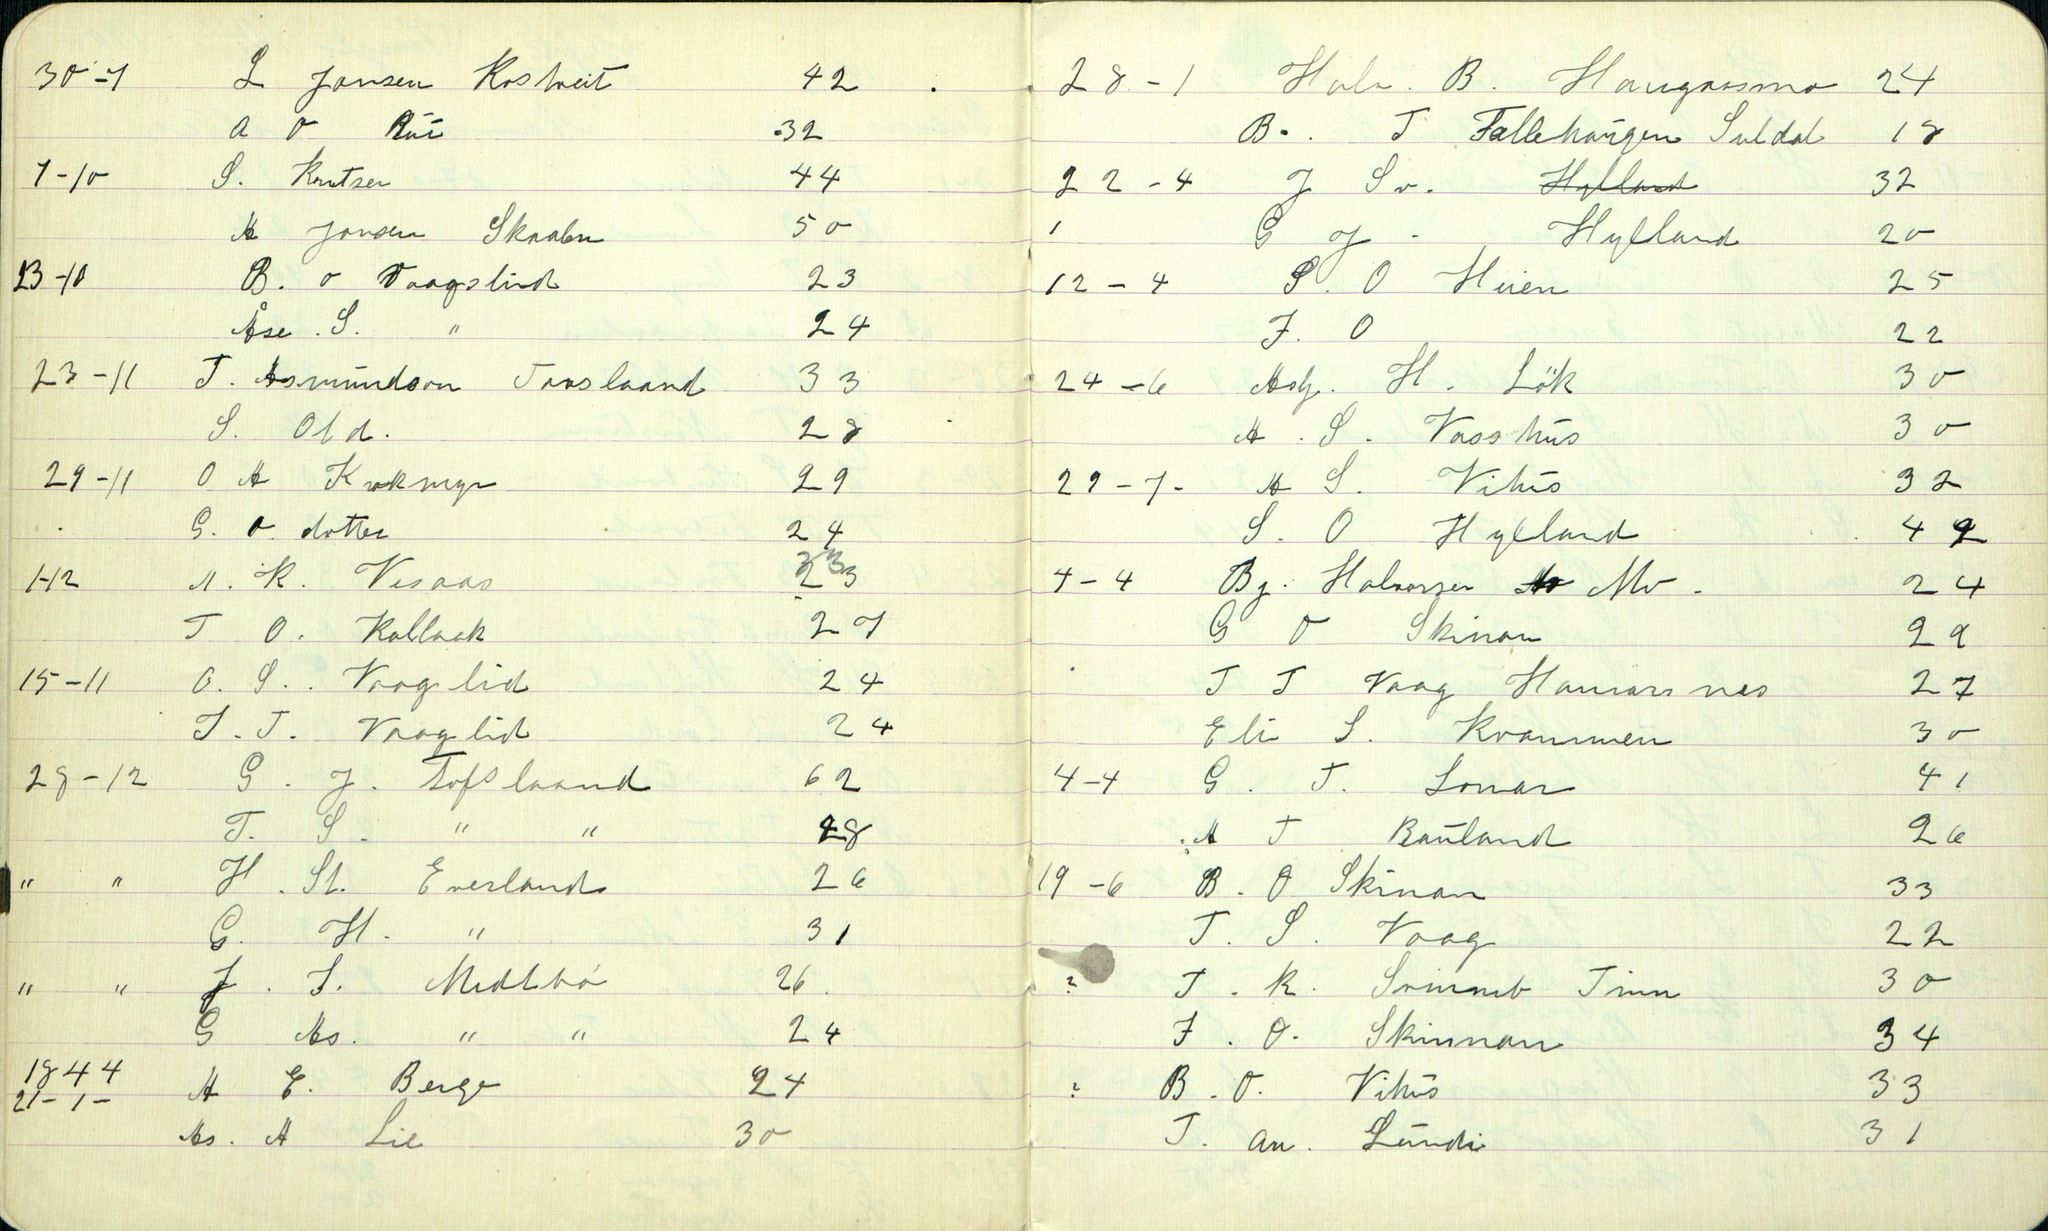 30-7 L Jonsen Rostveit 42
A O Rui 32
7-10 S. Knutsen 44
A Jonsen Skaalen 50
23-10 B. O Vaagslid 23
Åse. S. " 24
23-11 T. Asmundson Tovslaand 33
S. Old. 28
29-11 O A Krokmyr 29
G. O. dotter 24
1-12 A. K. Vesaas 23
T O. Kollaak 27
15-11 O. S. Vaagslid 24
I. T. Vaagslid 24
28-12 G. J. Tofslaand 62
T. S. " " 28
" " H. St. Everland 26
G. H. " 31
" " J. S. Midtbö 26.
G As. " " 24
1844
21-1- A E. Berge 24
As. A Lie 30
28-1 Halv. B. Haugaasmo 24
B. T Fallehaugen Suldal 18
22-4 J Sv. Hylland 32
G J - Hylland 20
12-4 S. O Heien 25
J. O 22
24-6 Adg. H. Lök 30
A. S. Vasshus 30
29-7- A S. Vihus 32
S. O Hylland 42
4-4 Bj. Halvorsen Mo. 24
G O Skinan 29
T T Vaag 27
Eli S. Kvammen 30
4-4 G. T. Lonar 41
A T Bauland 26
19-6 B. O Skinan 33
T. S. Vaag 22
? T. K. Tinn 30
J. O. Skinnan 34
? B. O. Vihus 33
T. An. Lundi 31